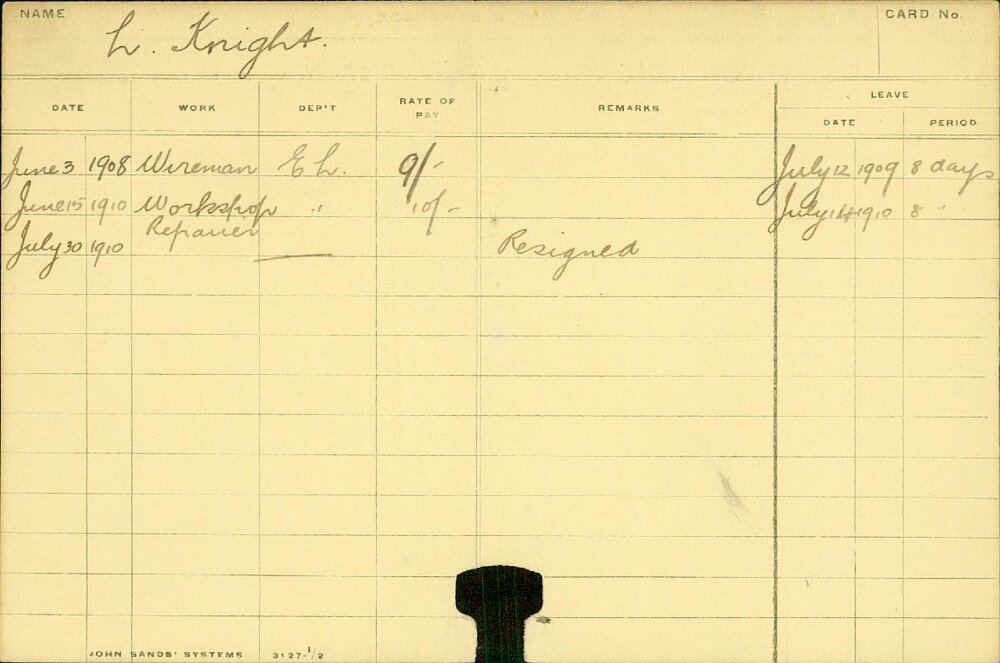 NAME
L. Knight.
CARD No.
DATE WORK DEP'T RATE OF PAY REMARKS LEAVE
DATE PERIOD
June 3 1908 Wireman E L. 9/- July 12 1909 8 days
June 15 1910 Workshop " 10/- July 14 1910 8 "
Repairer
July 30 1910 Resigned
JOHN SANDS' SYSTEMS 3127-1/2